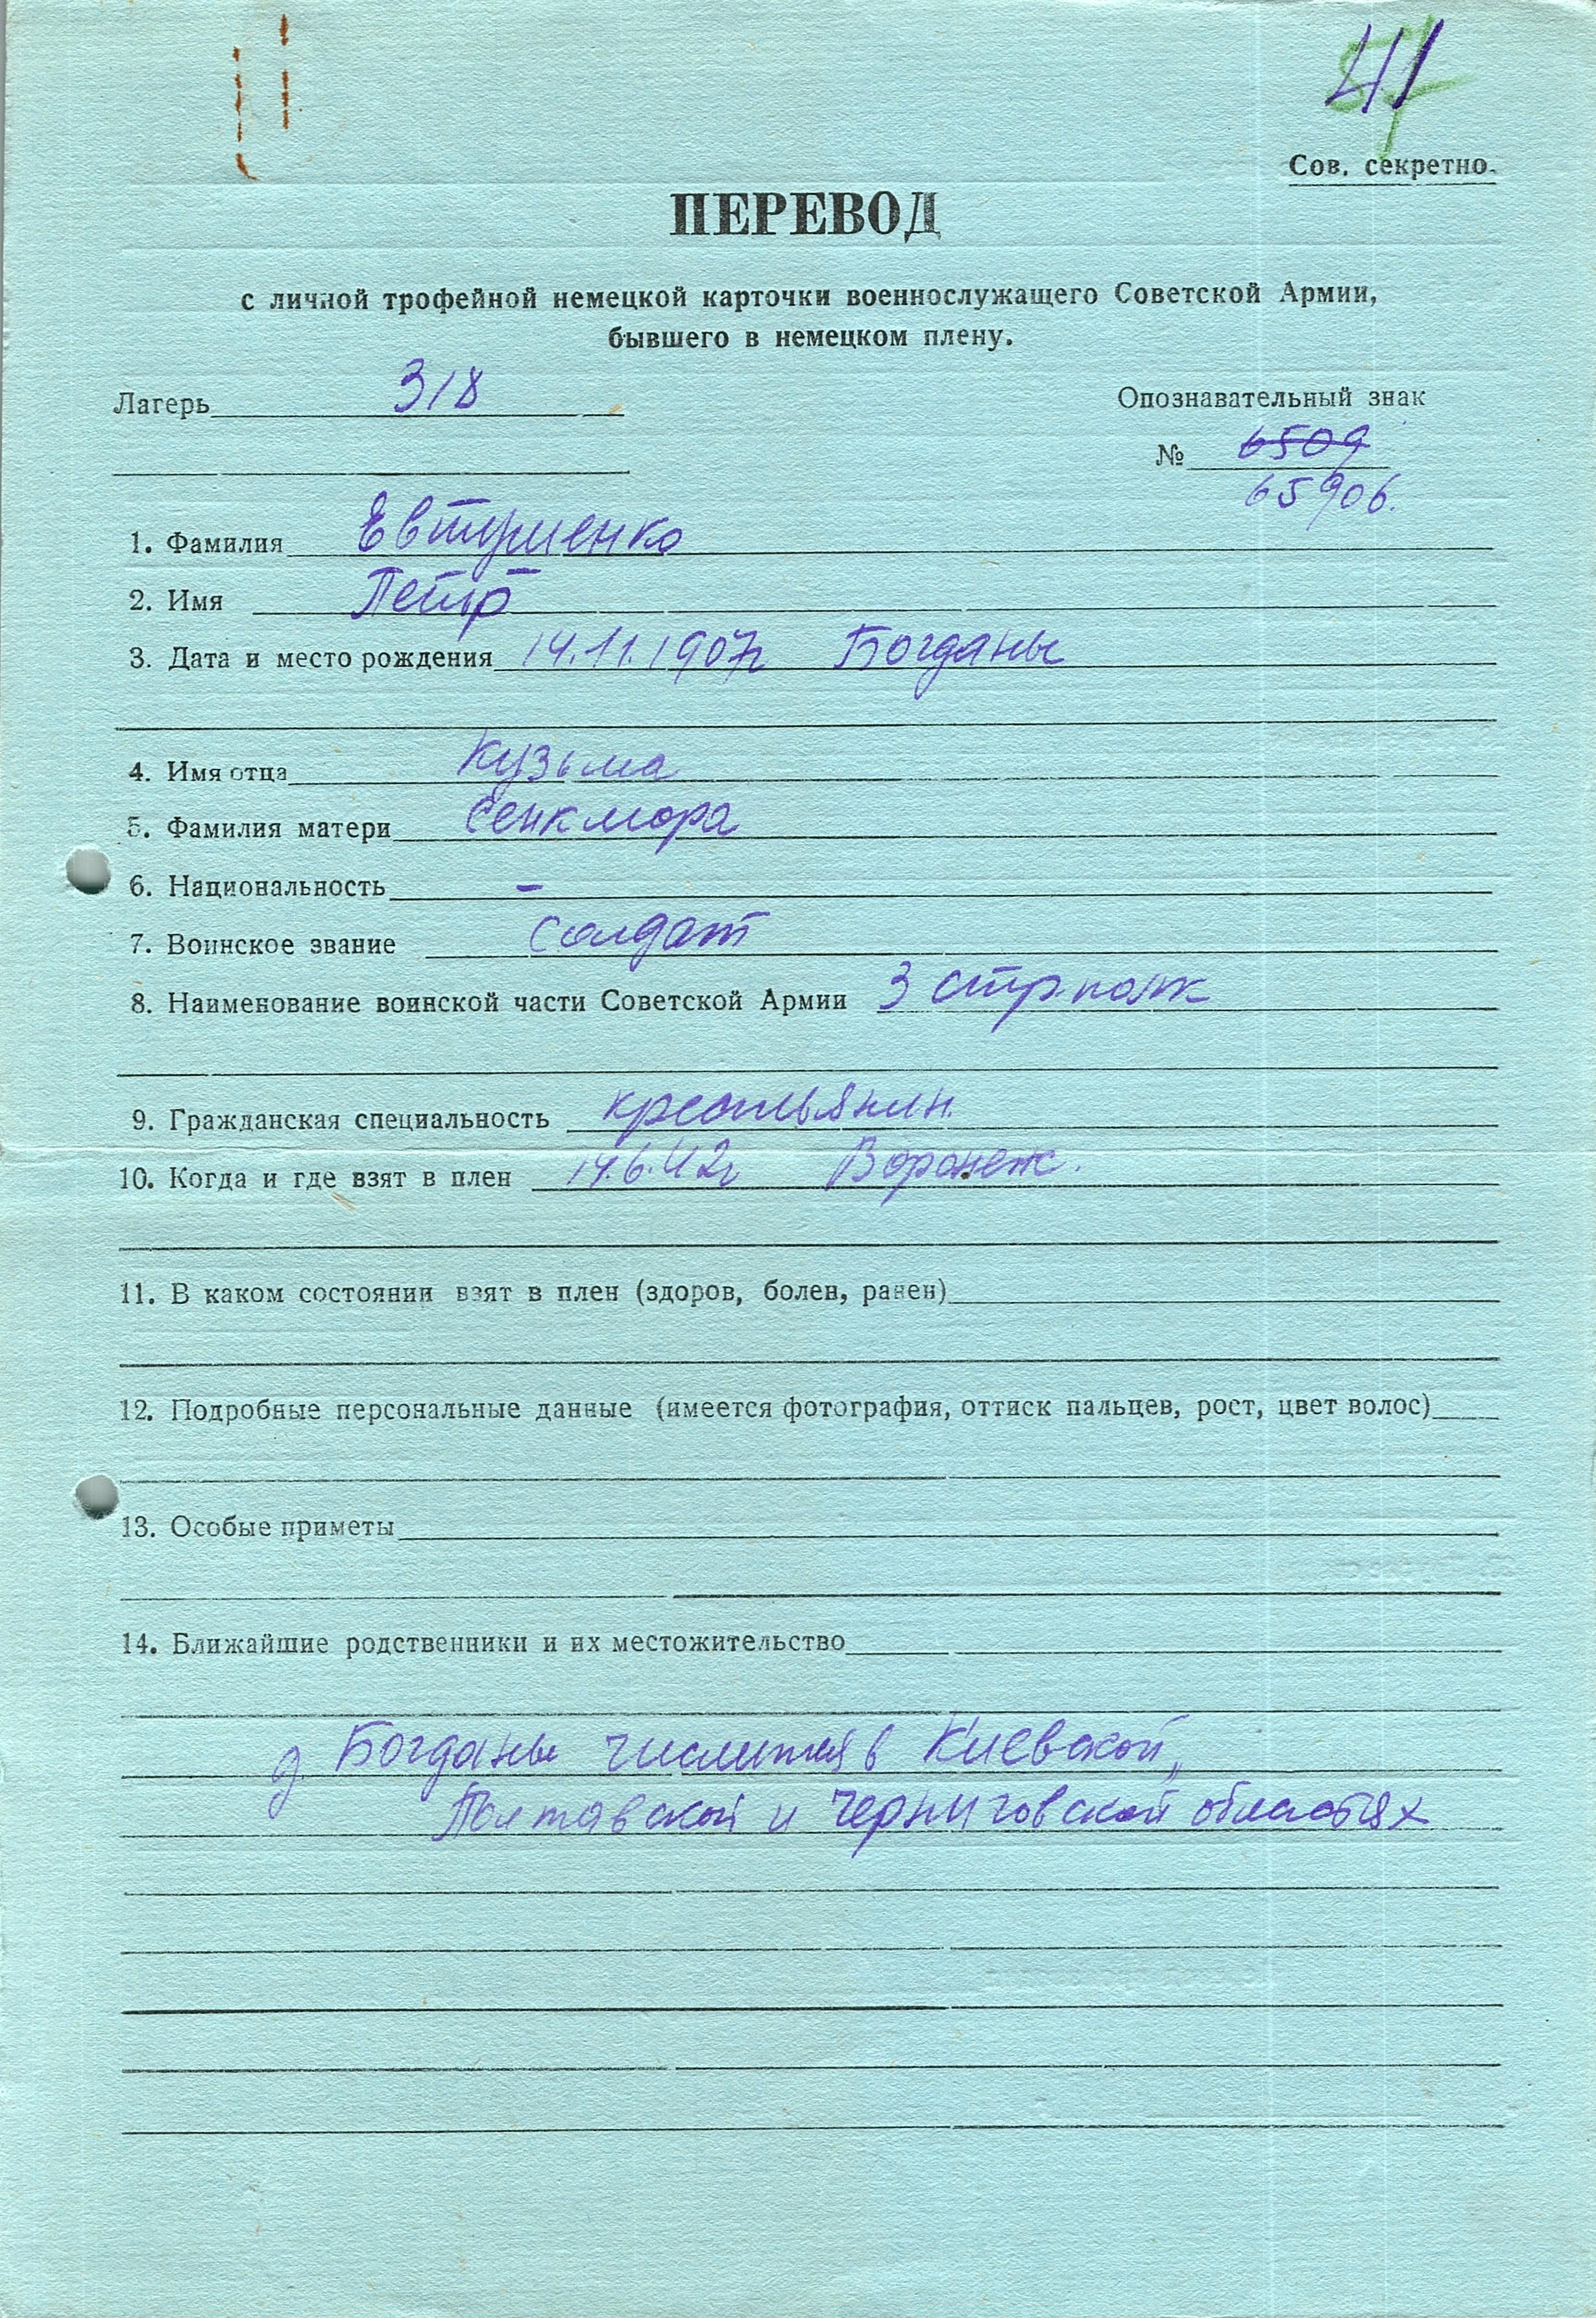 41
Сов. секретно.
ПЕРЕВОД
с личной трофейной немецкой карточки военнослужащего Советской Армии,
бывшего в немецком плену.
Лагерь 318
Опознавательный знак
№ 6509
65906.
1. Фамилия Евтушенко
2. Имя Петр
3. Дата и место рождения 14.11.1907г Богданы
4. Имя отца Кузьма
5. Фамилия матери Сенкмора
6. Национальность –
7. Воинское звание солдат
8. Наименование воинской части Советской Армии 3 стр. полк
9. Гражданская специальность крестьянин.
10. Когда и где взят в плен 14.6.42г Воронеж.
11. В каком состоянии взят в плен (здоров, болен, ранен)
12. Подробные персональные данные (имеется фотография, оттиск пальцев, рост, цвет волос)
13. Особые приметы
14. Ближайшие родственники и их местожительство
д. Богданы числится в Киевской,
Полтавской и Черниговской областях